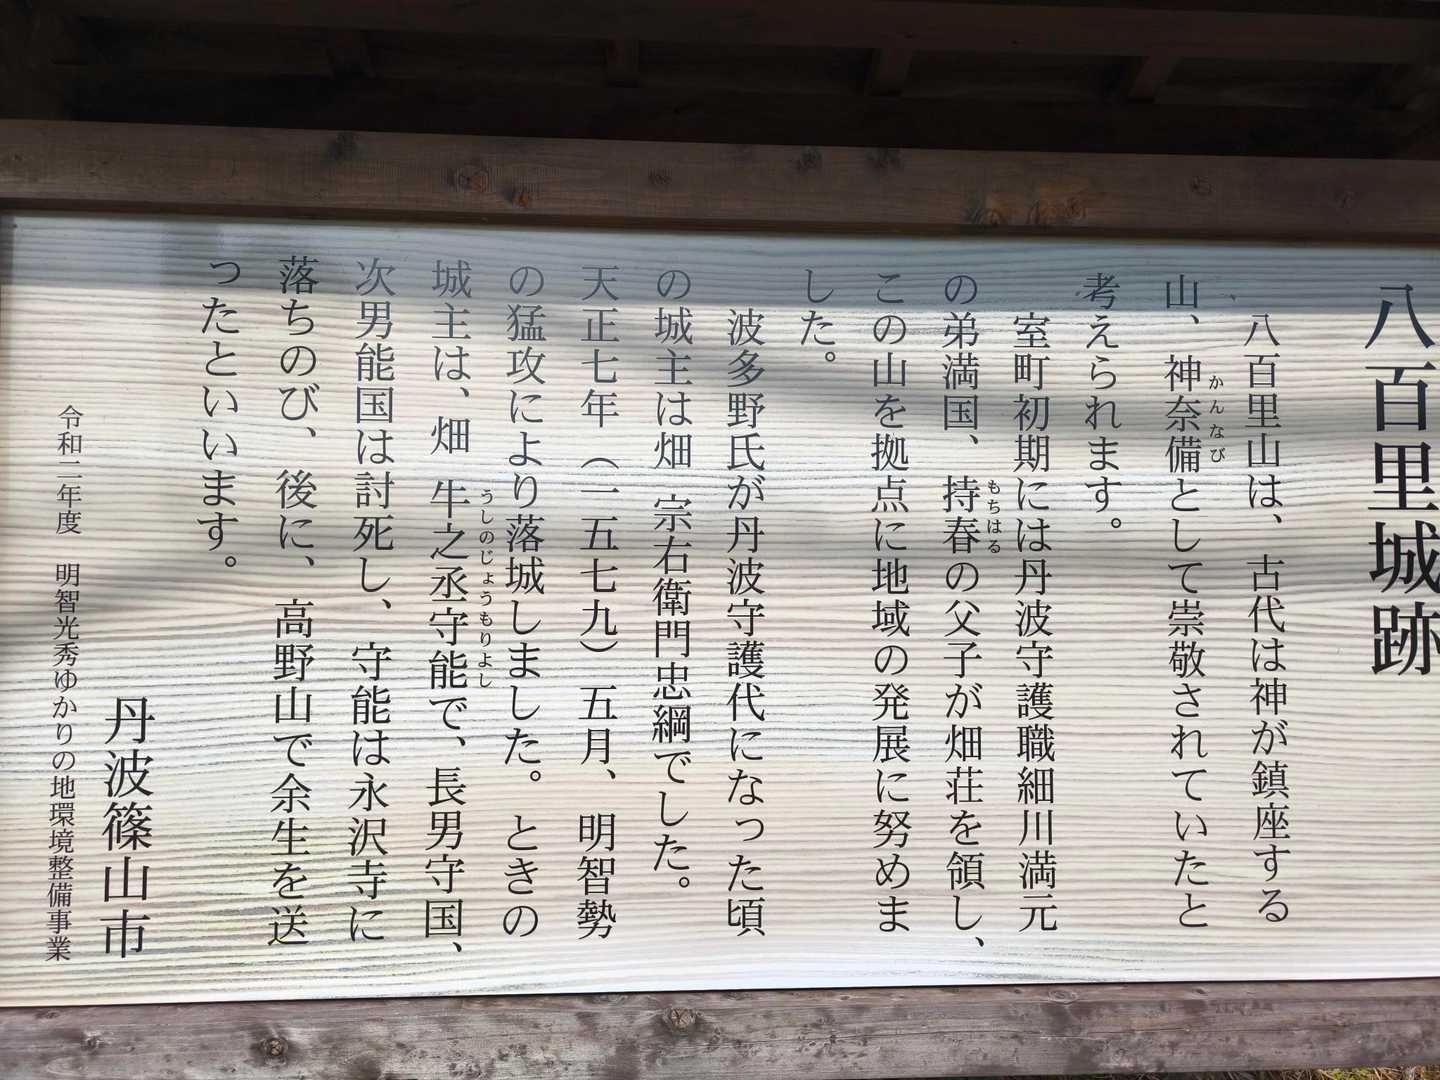 八百里城跡
八百里山は、古代は神が鎮座する
山、神奈備として崇敬されていたと
かんなび
考えられます。
室町初期には丹波守護職細川満元
の弟満国、持春の父子が畑荘を領し、
もちはる
この山を拠点に地域の発展に努めま
した。
波多野氏が丹波守護代になった頃
の城主は畑 宗右衛門忠綱でした。
天正七年（一五七九）五月、明智勢
の猛攻により落城しました。ときの
城主は、畑 牛之丞守能で、長男守国、
うしのじょうもりよし
次男能国は討死し、守能は永沢寺に
落ちのび、後に、高野山で余生を送
ったといいます。
丹波篠山市
令和二年度 明智光秀ゆかりの地環境整備事業